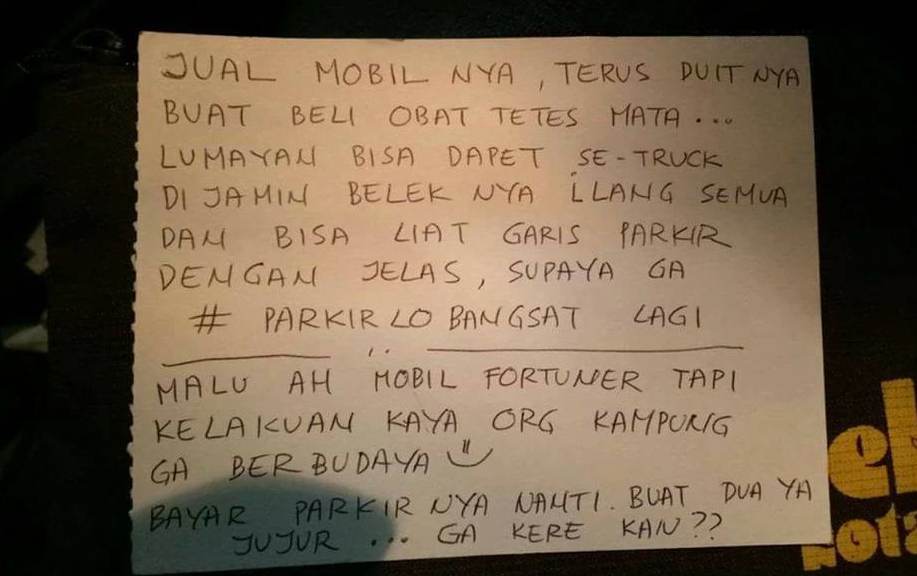 JUAL MOBIL NYA, TERUS DUIT NYA
BUAT BELI OBAT TETES MATA...
LUMAYAN BISA DAPET SE-TRUCK
DI JAMIN BELEK NYA ILANG SEMUA
DAN BISA LIAT GARIS PARKIR
DENGAN JELAS, SUPAYA GA
# PARKIR LO BANGSAT LAGI
MALU AH MOBIL FORTUNER TAPI
KELAKUAN KAYA ORG KAMPUNG
GA BERBUDAYA
BAYAR PARKIR NYA NANTI. BUAT DUA YA
JUJUR ... GA KERE KAN??